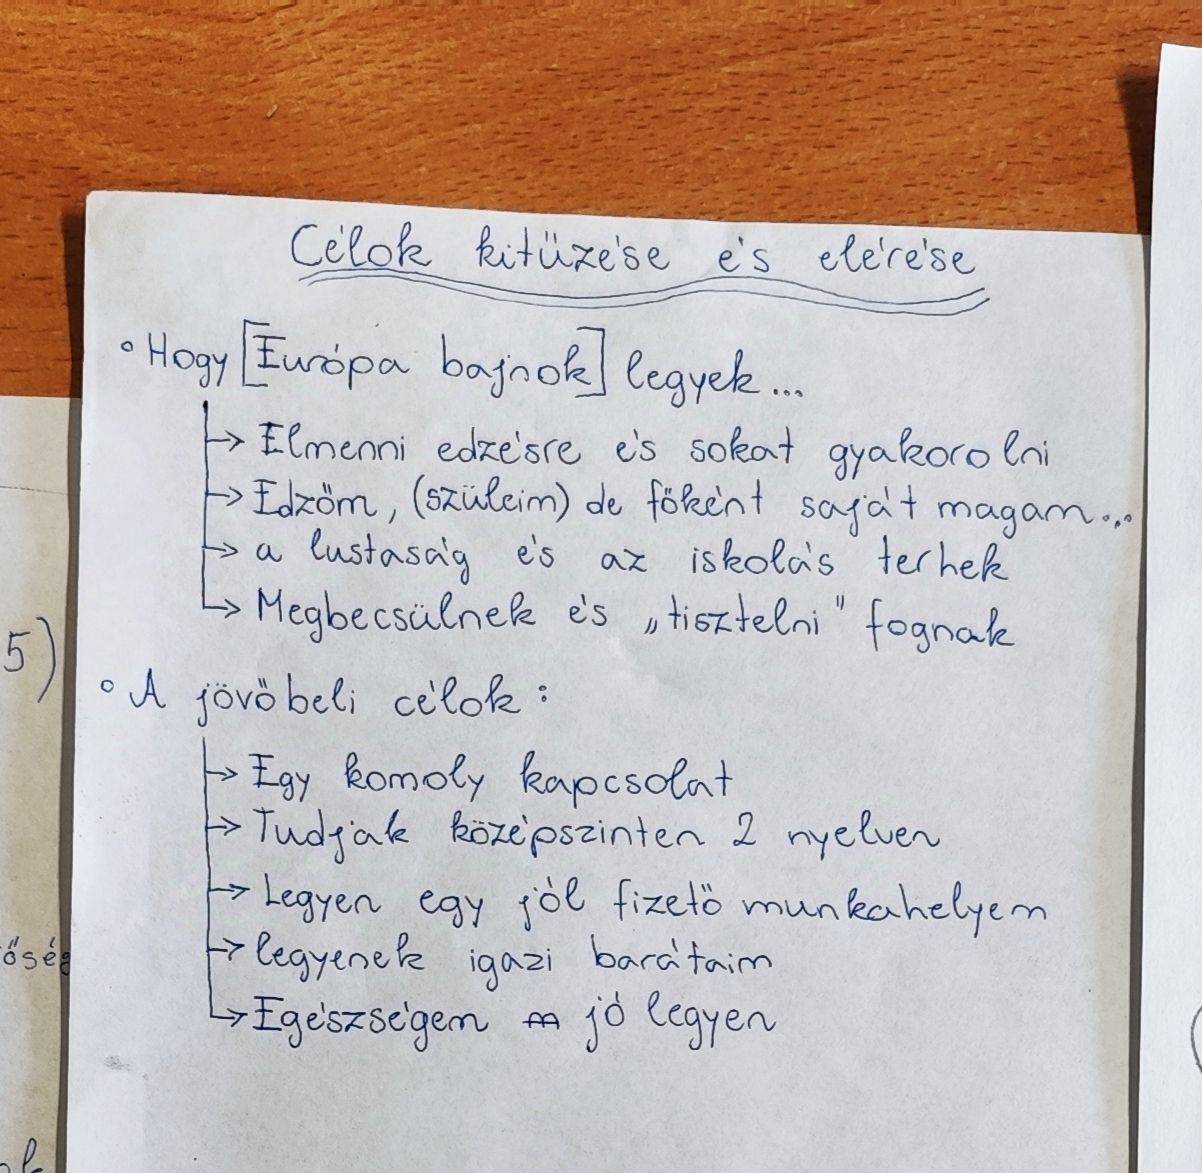 Célok kitűzése és elérése
• Hogy [Európa bajnok] legyek...
→ Elmenni edzésre és sokat gyakorolni
→ Edzőm, (szüleim) de főként saját magam...
→ a lustaság és az iskolás terhek
→ Megbecsülnek és „tisztelni" fognak
5)
• A jövőbeli célok:
→ Egy komoly kapcsolat
→ Tudjak középszinten 2 nyelven
→ Legyen egy jól fizető munkahelyem
→ legyenek igazi barátaim
→ Egészségem jó legyen